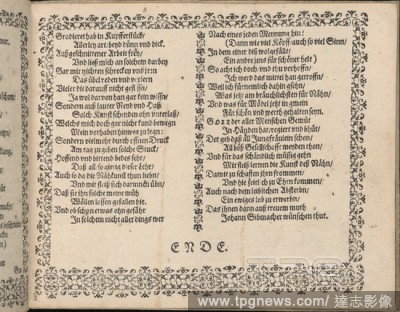 Gradieret hab in Kupfferstück/
Allerley art beyd dünn vnd dick.
Auß geschnittener Arbeit früh/
Vnd ließ mich an solchem
Gar wir
Das übel reden vnd
Vieler die darauff nicht
Ja wol darvon han gar kein wissn/
Sondern auß lauter Neyd vnd Haß
Solch Kunst schenden ohn vnterlaß/
Welchs mich doch gar nicht kand bewegn
Mein vorhaben hinweg zu legn:
Sondern vielmehr durch offnen Druck
Am tag zu geben solche Stuck/
Hoffend vnd bittend beds sehr/
Daß all so gern diese Lehr/
Auch so da die Nähkunst than lieben/
Vnd mit fleiß sich darinnen übn/
Daß sie ihn solche meine müh
Wöllen lassen gefallen hie.
Vnd ob schon etwas ohn gefähr
In solchem nicht aller dings wer
Nach eines jeden Meinung hin:
(Dann wie viel Köpff auch so viel Sinn/
In dem einer diß wolgefäll/
Ein andre jens für schöner helt)
So acht ich doch vnd thu verhoffn/
Ich werd das mittel han getroffn/
Weil ich fürnemlich dahin gsehn/
Was jetzt am bräuchlichsten für Nähn/
Vnd was für Mödel jetzt in gmein
Für schön vnd werth gehalten seyn.
Gott der aller Menschen Gemüt
In Händen hat regiert vnd hüt/
Der geb daß all Jungfräulein schon/
All böß Gesellschafft meyden thon/
Vnd für das schändlich müssig gehn
Mit fleiß lernen die Kunst deß Nähn/
Damit zu schaffen ihn frommen/
Vnd hie zeitl zu Ehrn kommen/
Auch nach dem leiblichen Absterbn/
Ein ewiges lob zu erwerbn/
Das ihnen dann auß treuem muth
Johann Sibmacher wünschen thut.
ENDE.
www.tpgnews.com / 達志影像